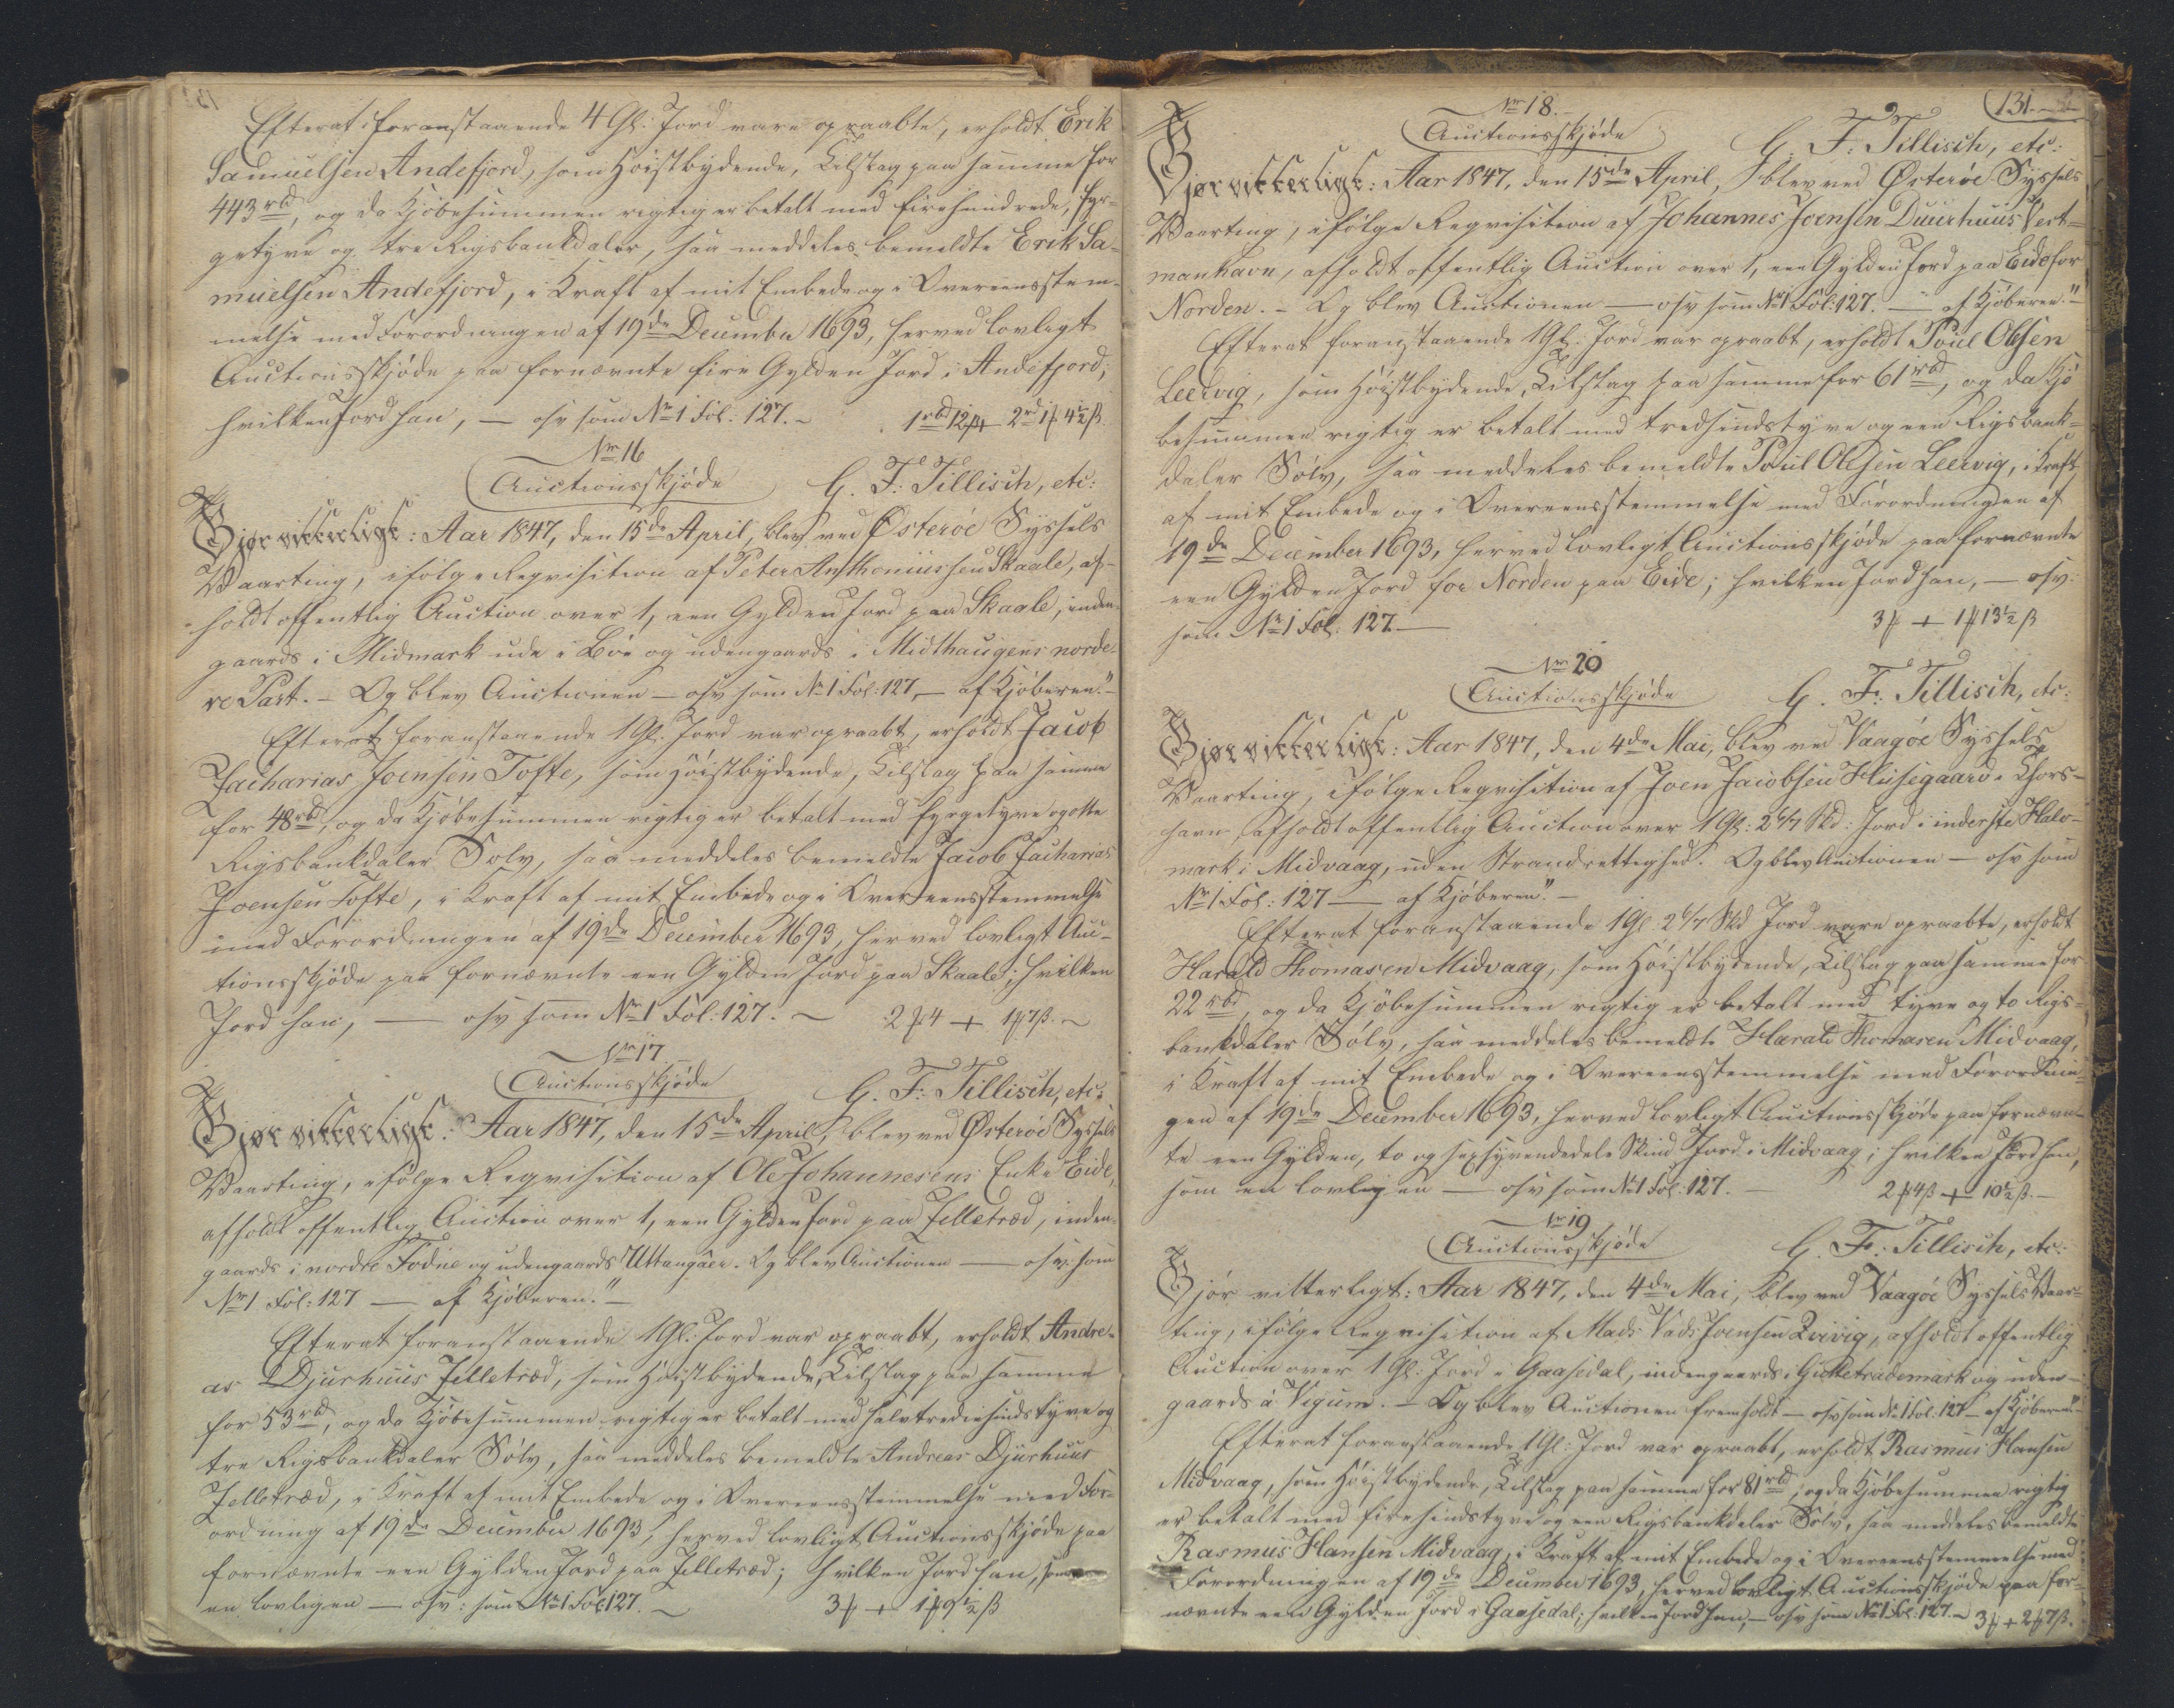 Efterat foranstaaende 4 Gl: Jord vare opraabte, erholdt Erik
Samuelsen Andefjord, som Høistbydende, Tilslag paa samme for
443 rbd, og da Kjøbesummen rigtig er betalt med firehundrede, fyr-
getyve og tre Rigsbankdaler, saa meddeles bemeldte Erik Sa-
muelsen Andefjord, i Kraft af mit Embede og i Overeensstem-
melse med Forordningen af 19de December 1693, herved lovligt
Auctionsskjøde paa fornævnte fire Gylden Jord i Andefjord;
hvilken Jord han, — osv som No 1 Fol: 127. –
Nr 16
Auctionsskjøde
G. F. Tillisch, etc:
Gjør vitterligt: Aar 1847, den 15de April, blev ved Østerøe Syssels
Vaarting, ifølge Reqvisition af Peter Anthoniussen Skaale, af-
holdt offentlig Auction over 1, een Gylden Jord paa Skaale, inden-
gaards i Midmark ude i Bøe og udengaards i Midthaugens norde-
re Part. – Og blev Auctionen – osv som No 1 Fol: 127, – af Kjøberen." –
Efterat foranstaaende 1 Gl. Jord var opraabt, erholdt Jacob
Zacharias Joensen Tofte, som Høistbydende, Tilslag paa samme
for 48 rbd, og da Kjøbesummen rigtig er betalt med fyrgetyve og otte
Rigsbankdaler Sølv, saa meddeles bemeldte Jacob Zacharias
Joensen Tofte, i Kraft af mit Embede og i Overeensstemmelse
med Forordningen af 19de December 1693, herved lovligt Auc-
tionsskjøde paa fornævnte een Gylden Jord paa Skaale; hvilken
Jord han, — osv som No 1 Fol: 127. –
Nr 17
Auctionsskjøde
G. F. Tillisch, etc:
Gjør vitterligt: Aar 1847, den 15de April, blev ved Østerøe Syssels
Vaarting, ifølge Reqvisition af Ole Johannesens Enke Eide,
afholdt offentlig Auction over 1, een Gylden Jord paa Selletræd, inden-
gaards i nordre Fodne og udengaards Uttangåer. Og blev Auctionen — osv. som
No 1 Fol: 127 — af Kjøberen." –
Efterat foranstaaende 1 Gl: Jord var opraabt, erholdt Andre-
as Djurhuus Selletræd, som Høistbydende, Tilslag paa samme
for 53 rbd, og da Kjøbesummen rigtig er betalt med halvtredsindstyve og
tre Rigsbankdaler Sølv, saa meddeles bemeldte Andreas Djurhuus
Selletræd, i Kraft af mit Embede og i Overeensstemmelse med For-
ordning af 19de December 1693, herved lovligt Auctionsskjøde paa
fornævnte een Gylden Jord paa Selletræd; hvilken Jord han, som
en lovligen — osv: som No 1 Fol 127. – 3 + 1 9½ ß
131
Nr 18.
Auctionsskjøde
G. F. Tillisch, etc:
Gjør vitterligt: Aar 1847, den 15de April, blev ved Østerøe Syssels
Vaarting, ifølge Reqvisition af Johannes Joensen Duurhuus Vest-
manhavn, afholdt offentlig Auction over 1, een Gylden Jord paa Eide for
Norden. – Og blev Auctionen — osv som No 1 Fol: 127. — af Kjøberen."
Efterat foranstaaende 1 Gl. Jord var opraabt, erholdt Poul Olesen
Leervig, som Høistbydende, Tilslag paa samme for 61 rbd, og da Kjø-
besummen rigtig er betalt med tredsindstyve og een Rigsbank-
daler Sølv, saa meddeles bemeldte Poul Olesen Leervig, i Kraft
af mit Embede og i Overeensstemmelse med Forordningen af
19de December 1693, herved lovligt Auctionsskjøde paa fornævnte
een Gylden Jord for Norden paa Eide; hvilken Jord han, — osv:
som No 1 Fol: 127. — 3 + 1 13½ ß
Nr 20
Auctionsskjøde
G. F. Tillisch, etc:
Gjør vitterligt: Aar 1847, den 4de Mai, blev ved Vaagøe Syssels
Vaarting, ifølge Reqvisition af Joen Jacobsen Husegaard i Thors-
havn, afholdt offentlig Auction over 1 Gl: 2 6/7 Skd: Jord i inderste Halv-
mark i Midvaag, uden Strandrettighed. Og blev Auctionen — osv som
No 1 Fol: 127 — af Kjøberen." –
Efterat foranstaaende 1 Gl 2 6/7 Skd Jord vare opraabte, erholdt
Harald Thomasen Midvaag, som Høistbydende, Tilslag paa samme for
22 rbd, og da Kjøbesummen rigtig er betalt med tyve og to Rigs-
bankdaler Sølv, saa meddeles bemeldte Harald Thomasen Midvaag,
i Kraft af mit Embede og i Overeensstemmelse med Forordnin-
gen af 19de December 1693, herved lovligt Auctionsskjøde paa fornævn-
te een Gylden, to og sexsyvendedele Skind Jord i Midvaag; hvilken Jord han,
som en lovligen — osv som No 1 Fol: 127. –
Nr 19
Auctionsskjøde
G. F. Tillisch, etc:
Gjør vitterligt: Aar 1847, den 4de Mai, blev ved Vaagøe Syssels Vaar-
ting, ifølge Reqvisition af Mads Joensen Qvivig, afholdt offentlig
Auction over 1 Gl: Jord i Gaasedal, indengaards i og uden-
gaards á Vigum. – Og blev Auctionen fremholdt – osv som No 1 Fol: 127 – af Kjøberen." –
Efterat foranstaaende 1 Gl: Jord var opraabt, erholdt Rasmus Hansen
Midvaag, som Høistbydende, Tilslag paa samme for 81 rbd, og da Kjøbesummen rigtig
er betalt med firesindstyve og een Rigsbankdaler Sølv, saa meddeles bemeldte
Rasmus Hansen Midvaag, i Kraft af mit Embede og i Overeensstemmelse med
Forordningen af 19de December 1693, herved lovligt Auctionsskjøde paa for-
nævnte een Gylden Jord i Gaasedal; hvilken Jord han, – osv som No 1 Fol: 127. –